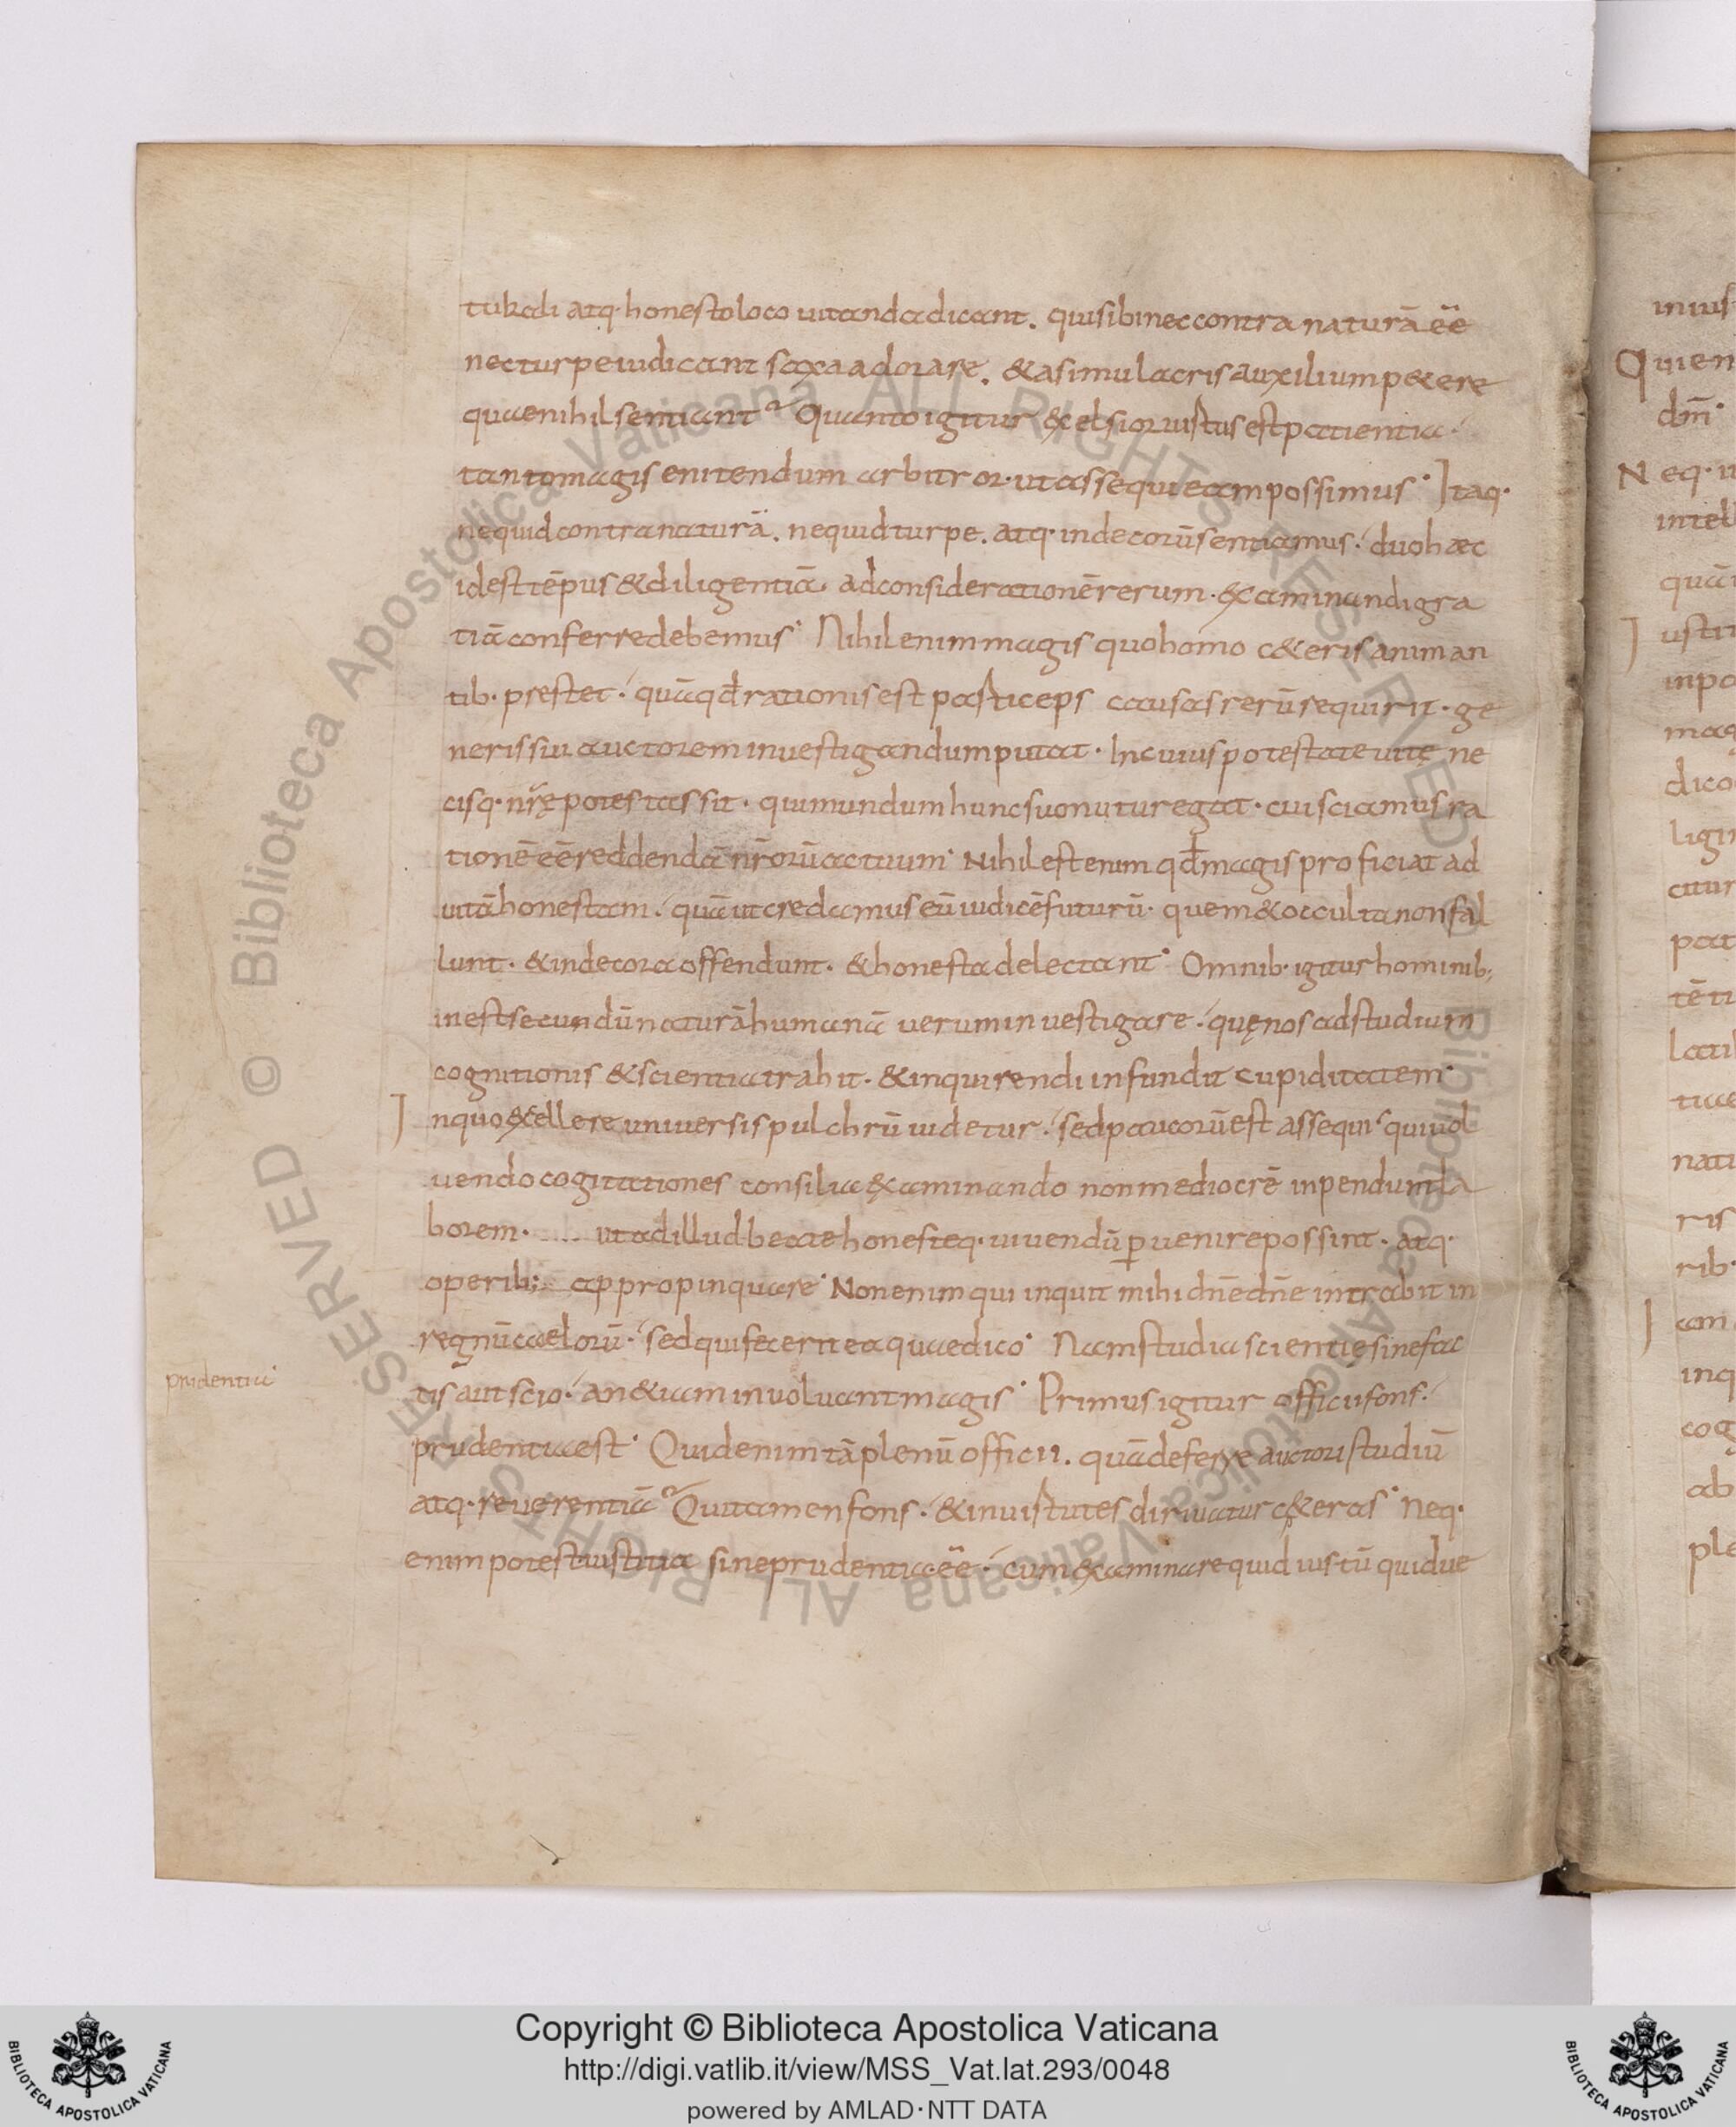 tuběadi atq· honesto loco uitanda dicant. qui sibi nec contra naturā eē
nec turpe iudicant saxa adorare. & a simulacris auxilium p&ere
quae nihil sentiant Quanto igitur excelsior uirtus est patientia
tanto magis enitendum arbitror· ut assequi eam possimus· Itaq·
nequid contra naturā. nequid turpe. atq· indecorū sentiamus· duo haec
id est tēpus & diligentiā ad considerationē rerum· examinandi gra
tiā conferre debemus· Nihil enim magis quo homo c&eris animan
tib· prestet· quā qđ rationis est particeps causas rerū requirit· ge
neris sui auctorem inuestigandum putat· In cuius potestate uitę ne
cisq· nr̄ę potestas sit· qui mundum hunc suo nutu regat· cui sciamus ra
tionē eē reddendā nr̄orū actuum· Nihil est enim qđ magis proficiat ad
uitā honestam· quā ut credamus eū iudicē futurū· quem & occulta non fal
lunt· & indecora offendunt· & honesta delectant· Omnib· igitur hominib;
inest secundū naturā humanā uerum inuestigare· quę nos ad studium
cognitionis & scientia trahit· & inquirendi infundit cupiditatem·
In quo excellere uniuersis pulchrū uidetur· sed paucorū est assequi· qui uol
uendo cogitationes consilia examinando non mediocrē inpendunt la
borem· ut ad illud beate honesteq· uiuendū puenire possint· atq·
operib; appropinquare· Non enim qui inquit mihi dn̄e dn̄e intrabit in
regnū caelorū· sed qui fecerit ea quae dico· Nam studia scientie sine fac
tis aut scio· an &iam inuoluant magis· Primus igitur officii fons·
prudentia
prudentia est· Quid enim tā plenū officii. quā deferre auctori studiū
atq· reuerentiā Qui tamen fons· & in uirtutes diriuatur c&eras· Neq·
enim potest iustitia sine prudentia eē· cum examinare quid iustū quidue
inius
Quien
dm̄·
Neq· it
intel
quā
Iusti
inpo
mag
dico
ligi
citur
pat
tē ti
lati
tiae
natu
ris
rib·
Iam
inq
cog
ab
ple
© Biblioteca Apostolica Vaticana ALL RIGHTS RESERVED
© Biblioteca Apostolica Vaticana ALL RIGHTS RESERVED
Copyright © Biblioteca Apostolica Vaticana
http://digi.vatlib.it/view/MSS_Vat.lat.293/0048
powered by AMLAD·NTT DATA
BIBLIOTECA APOSTOLICA VATICANA
BIBLIOTECA APOSTOLICA VATICANA